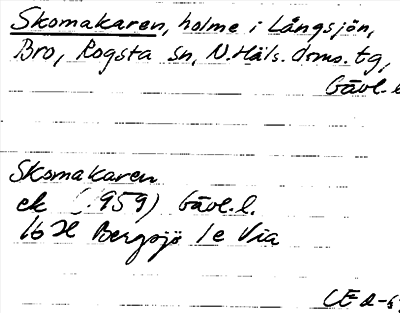 Skomakaren, holme i Långsjön,
Bro, Rogsta sn, N.Häls. doms. tg,
Gävl. l
Skomakaren
ek (.959) Gävl. l.
16H Bergsjö 1e Via